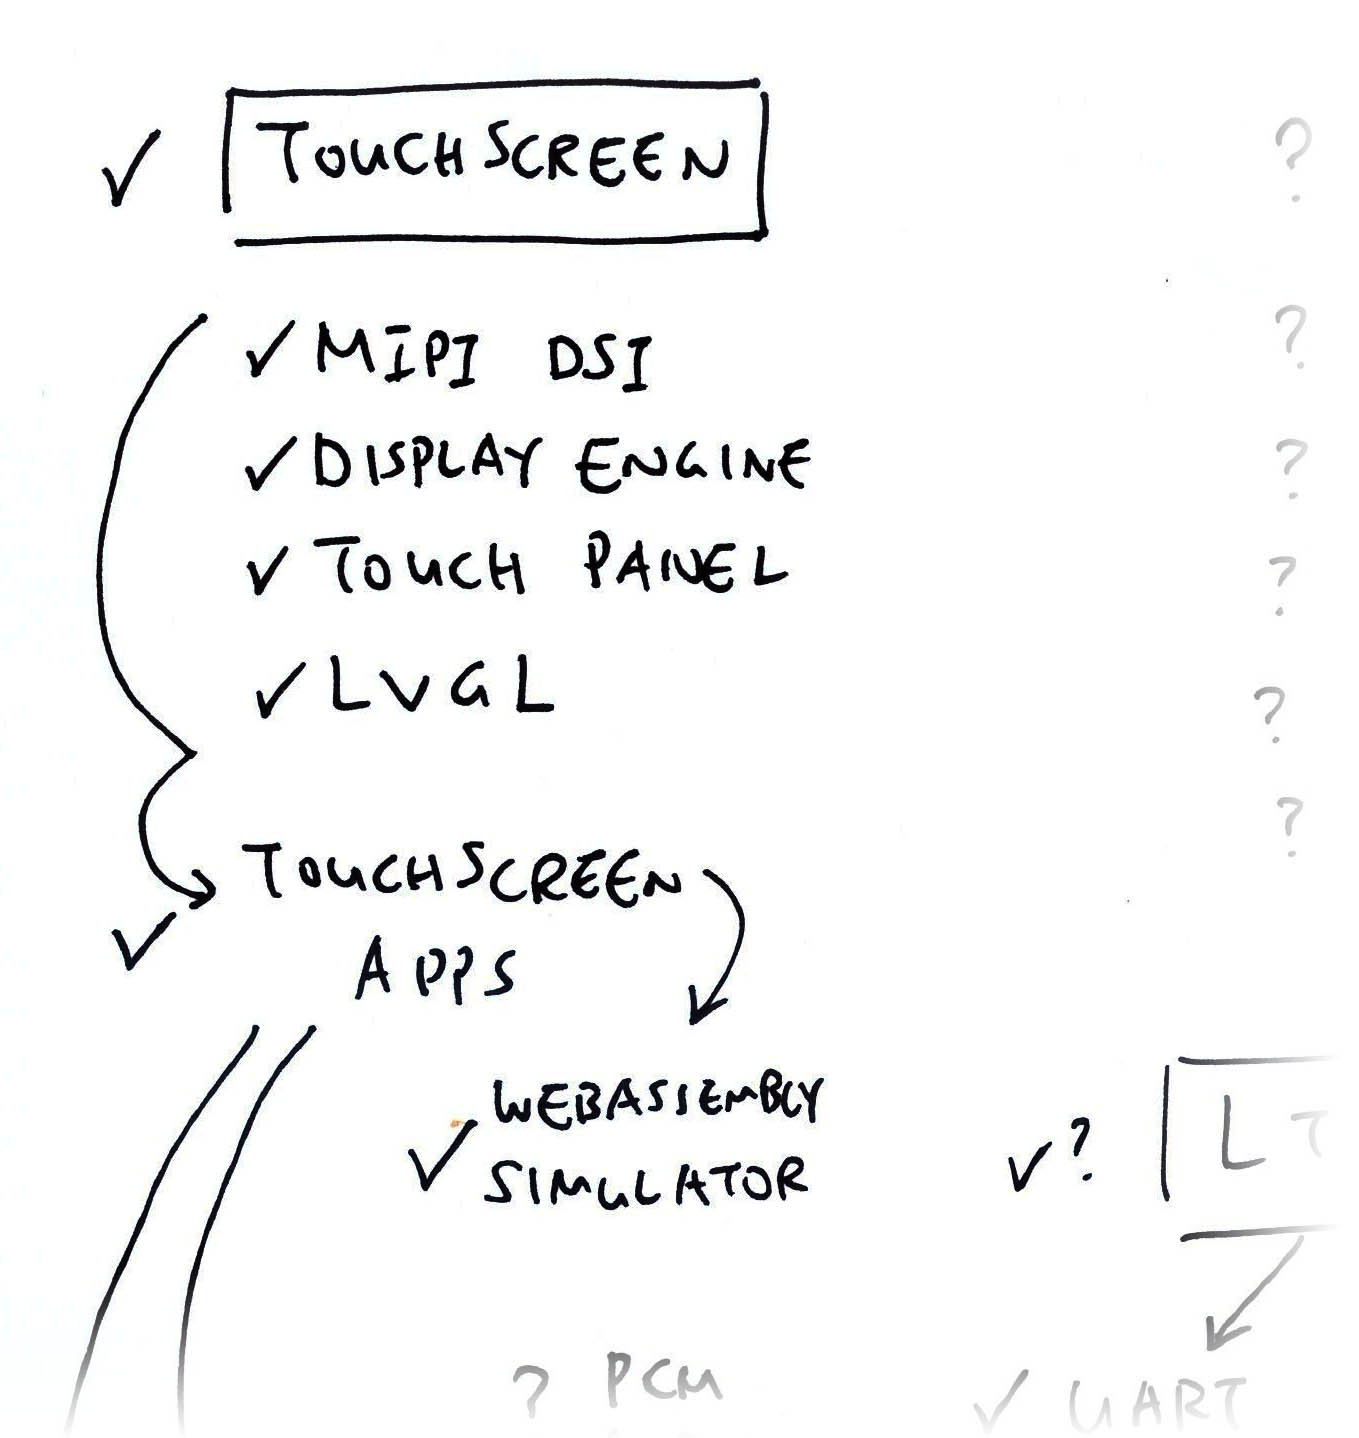 ✓ TOUCHSCREEN
?
✓ MIPI DSI
?
✓ DISPLAY ENGINE
?
✓ TOUCH PANEL
?
✓ LVGL
?
?
✓ TOUCHSCREEN
APPS
✓ WEBASSEMBLY
SIMULATOR
✓? LT
? PCM
✓ UART